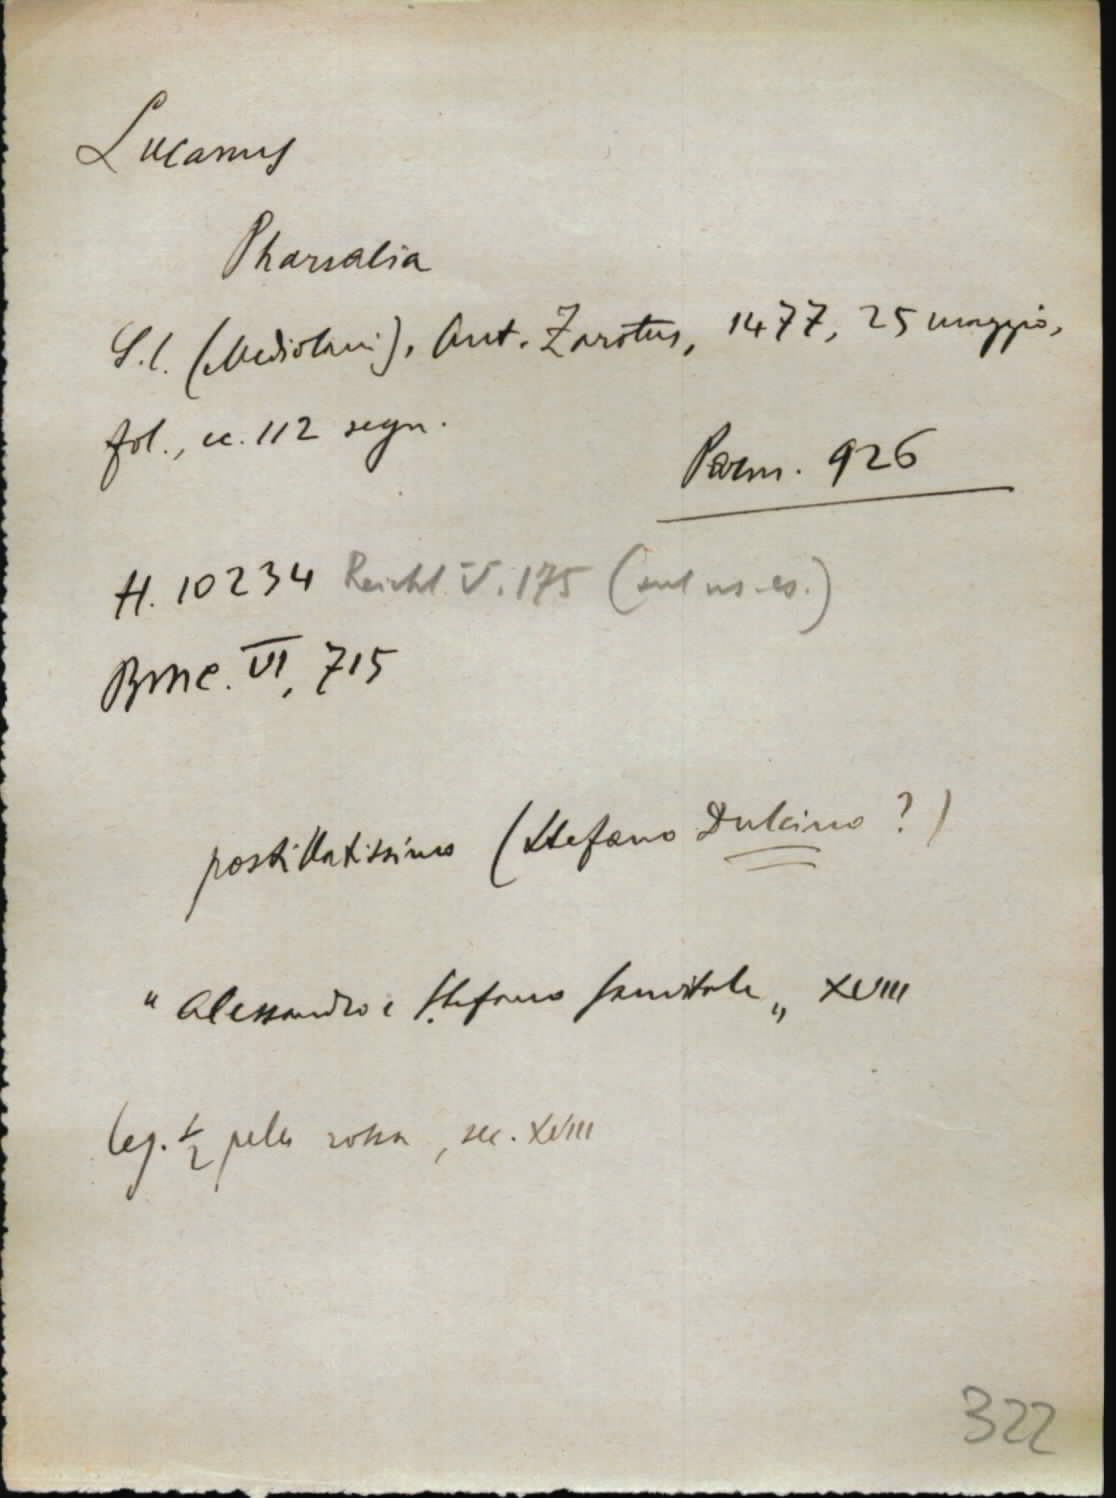 Lucanus
Pharsalia
S.l. (Mediolani), Ant. Zarotus, 1477, 25 maggio,
fol., cc. 112 segn.
Parm. 926
H. 10234 Reichl. V. 175 (sul ns. es.)
BMC. VI, 715
postillatissimo (Stefano Dulcino ?)
"Alessandro e Stefano Sanvitale„ XVIII
leg. 1/2 pelle rossa, sec. XVIII
322